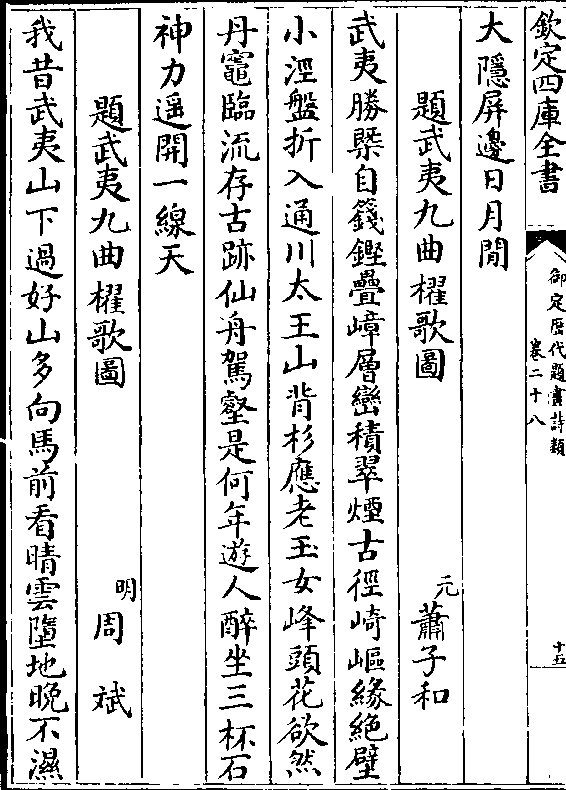 欽定四庫全書
御定歴代題畫詩類
卷二十八
十五
大隱屏邊日月閒
題武夷九曲櫂歌圖
元
蕭子和
武夷勝槩自籛鏗疊嶂層巒積翠煙古徑崎嶇緣絶壁
小溼盤折入通川太王山背杉應老玉女峰頭花欲然
丹竈臨流存古跡仙舟駕壑是何年遊人醉坐三杯石
神力遥開一線天
題武夷九曲櫂歌圖
明
周斌
我昔武夷山下過好山多向馬前看晴雲墮地晚不濕